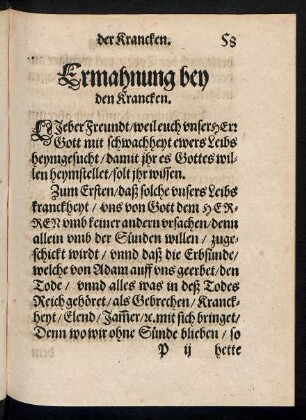 der Krancken. 58
Ermahnung bey
den Krancken.
LIeber Freundt / weil euch vnser HErr
Gott mit schwachheyt ewers Leibs
heymgesucht / damit jhr es Gottes wil-
len heymstellet / solt jhr wissen.
Zum Ersten / daß solche vnsers Leibs
kranckheyt / vns von Gott dem HER-
REN vmb keiner andern vrsachen / denn
allein vmb der Sünden willen / zuge-
schickt wirdt / vnnd daß die Erbsünde /
welche von Adam auff vns geerbet / den
Tode / vnnd alles was in deß Todes
Reich gehöret / als Gebrechen / Kranck-
heyt / Elend / Jam̃er / ꝛc. mit sich bringet /
Denn wo wir ohne Sünde blieben / so
P ij hette